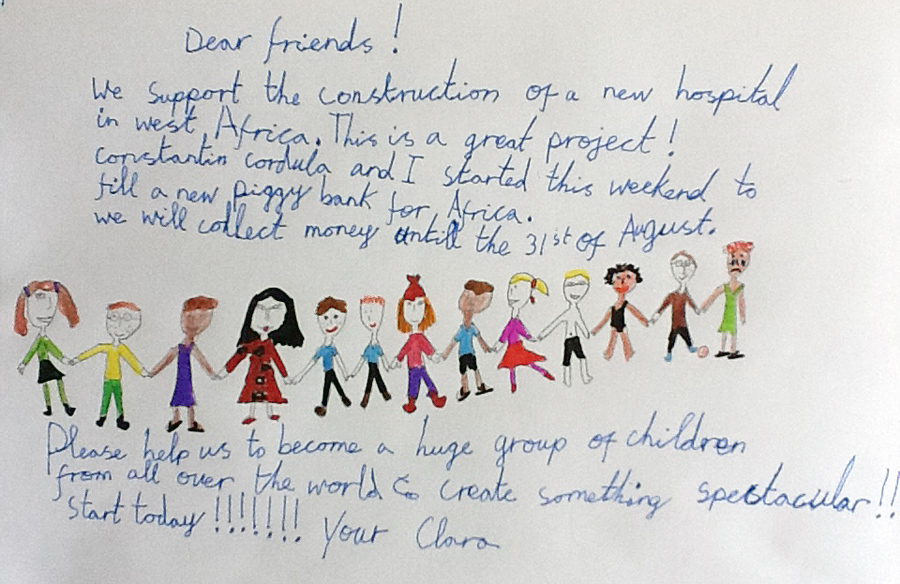 Dear friends!
We support the construction of a new hospital
in west Africa. This is a great project!
constantin cordula and I started this weekend to
fill a new piggy bank for Africa.
we will collect money untill the 31st of August.
Please help us to become a huge group of children
from all over the world to create something spectacular!!
Start today!!!!!!! Your Clara